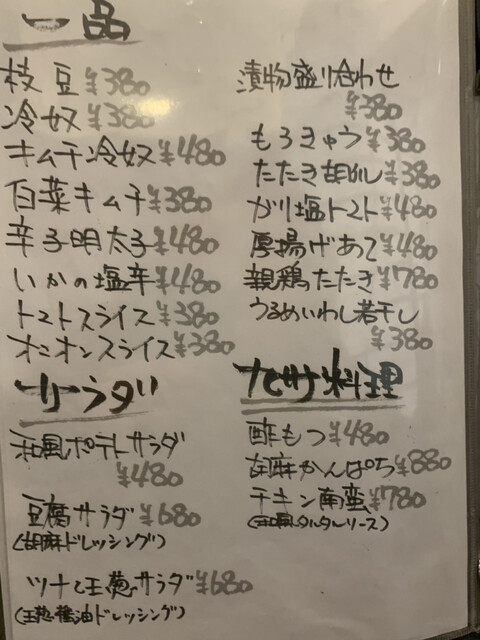 一品
枝豆 ¥380
冷奴 ¥380
キムチ冷奴 ¥480
白菜キムチ ¥380
辛子明太子 ¥480
いかの塩辛 ¥480
トマトスライス ¥380
オニオンスライス ¥380
サラダ
和風ポテトサラダ
¥480
豆腐サラダ ¥680
(胡麻ドレッシング)
ツナと玉葱サラダ ¥680
(玉葱醤油ドレッシング)
漬物盛り合わせ
¥380
もろきゅう ¥380
たたき胡瓜 ¥380
ガリ塩トマト ¥480
厚揚げあて ¥480
親鶏たたき ¥780
うるめいわし若干し
¥380
九州料理
酢もつ ¥480
胡麻かんぱち ¥880
チキン南蛮 ¥780
(和風タルタルソース)